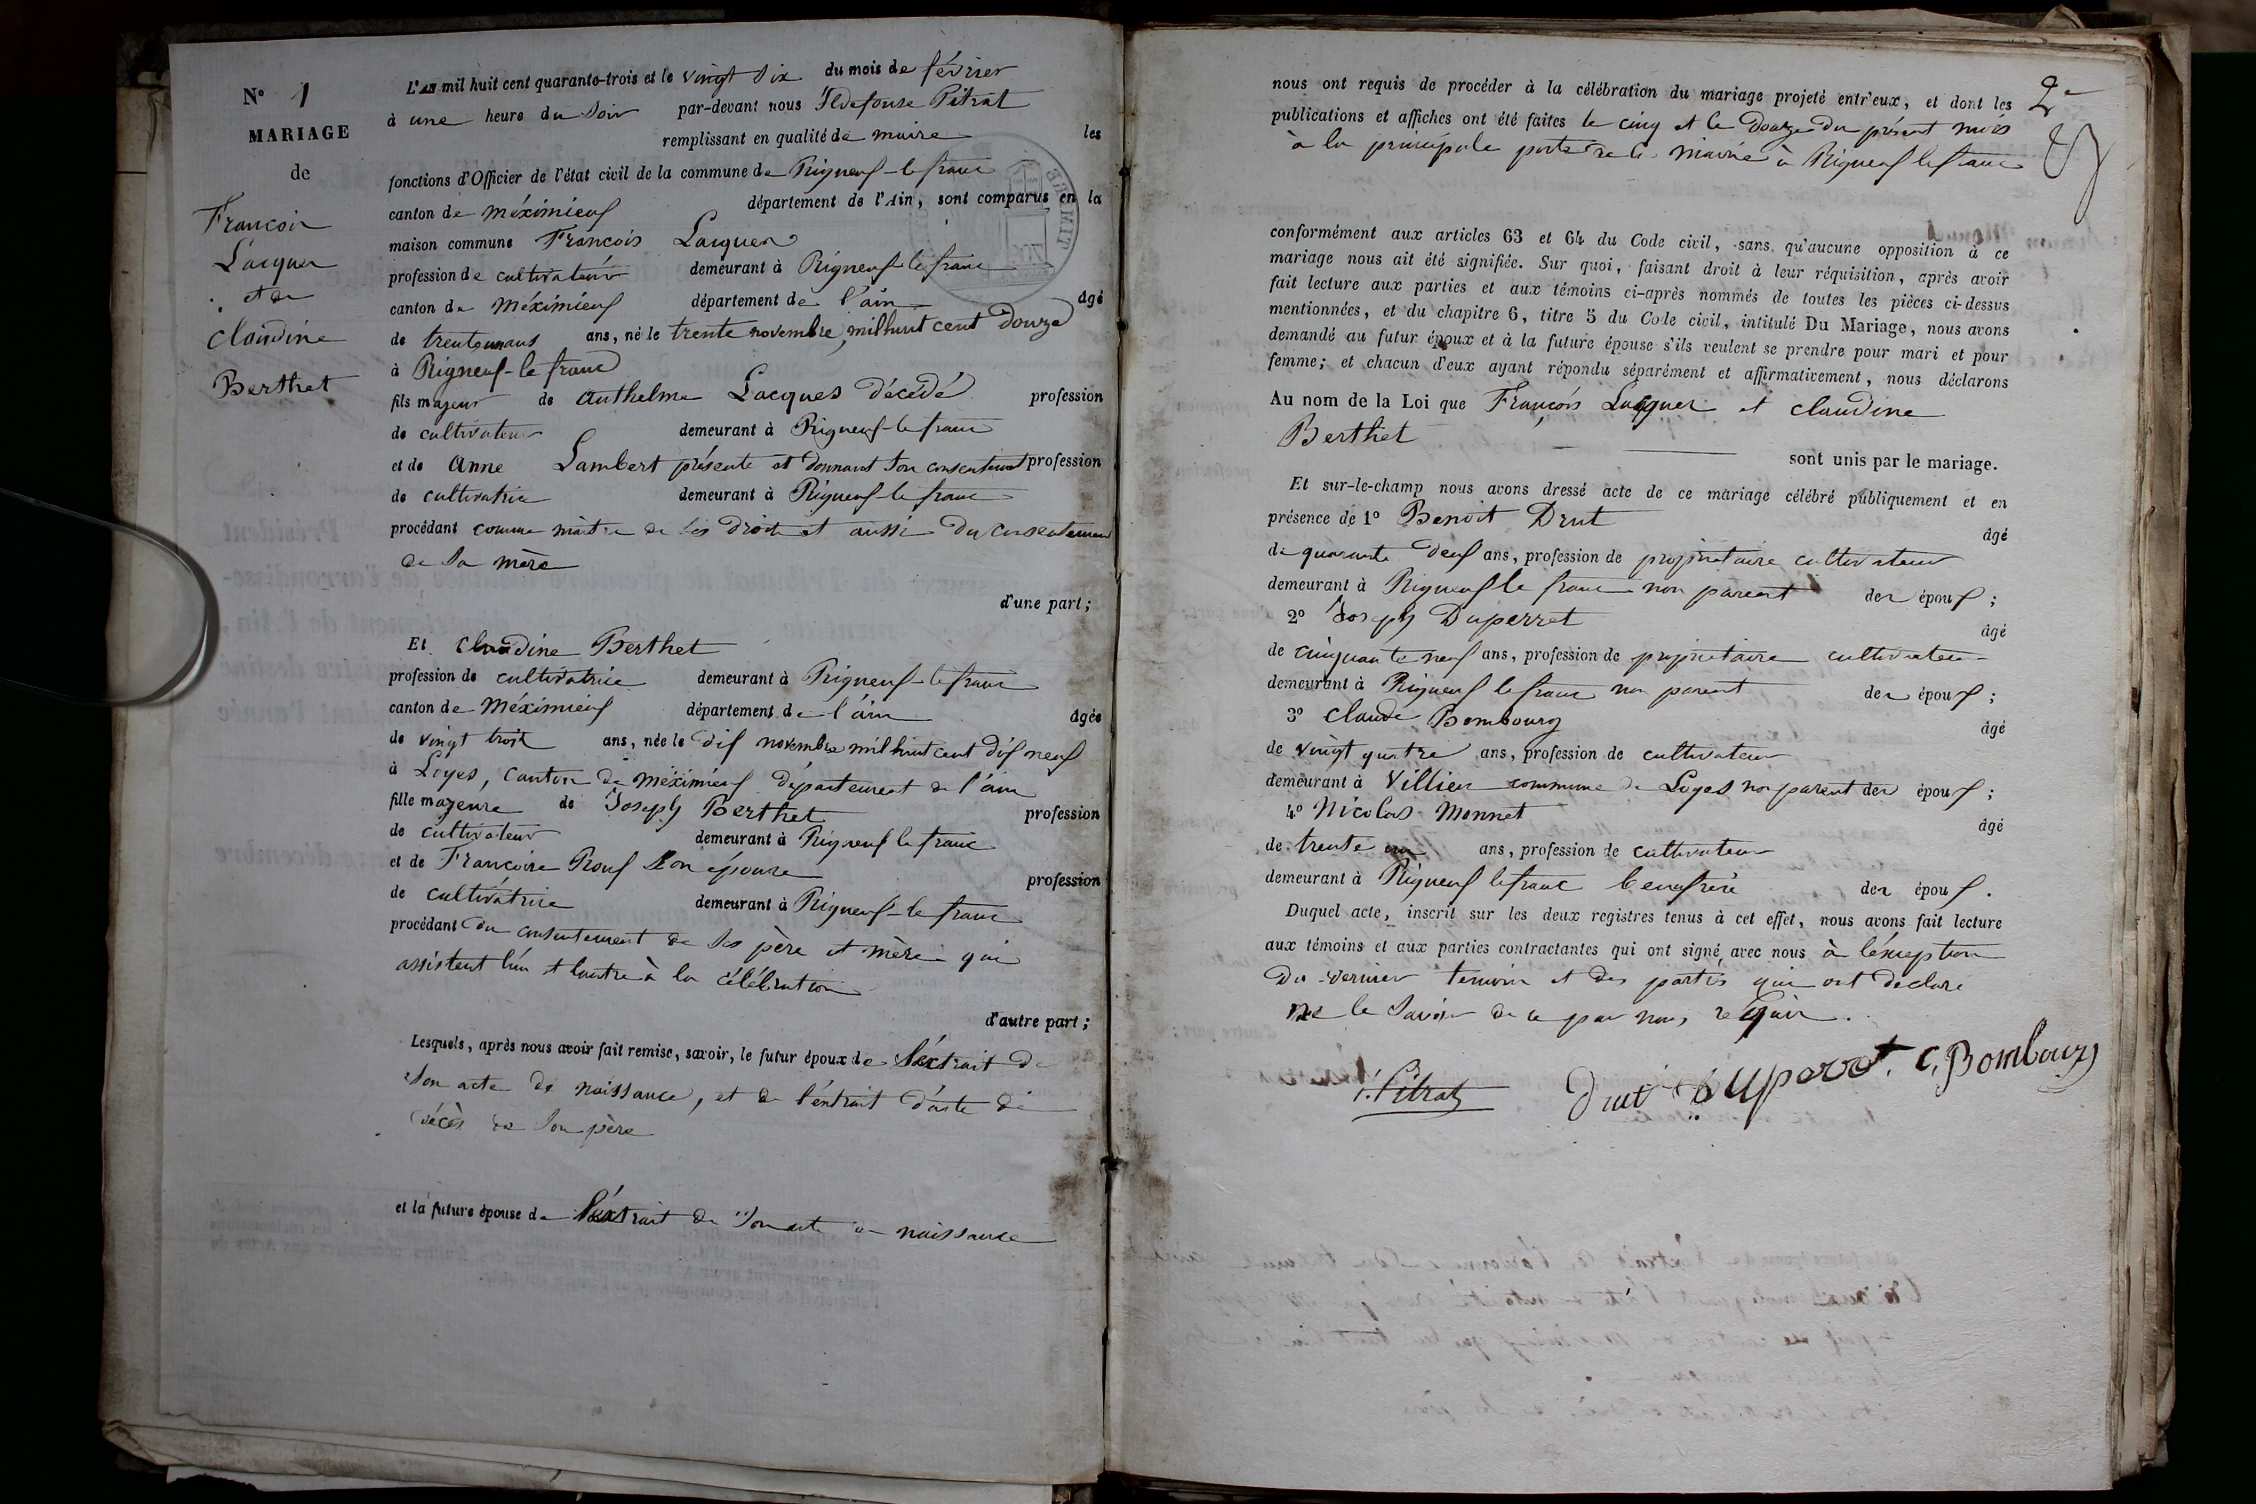 N° 1
MARIAGE
de
François
Lacques
et de
Claudine
Berthet
L'AN mil huit cent quarante-trois et le vingt six du mois de février
à une heure du soir par-devant nous Ildefonse Pitrat
remplissant en qualité de maire les
fonctions d'Officier de l'état civil de la commune de Rigneux-le franc
canton de méximieux département de l'Ain, sont comparus en la
maison commune François Lacques
profession de cultivateur demeurant à Rigneux le franc
canton de Méximieux département de l'ain âgé
de trente un ans ans, né le trente novembre mil huit cent douze
à Rigneux-le franc
fils majeur de Anthelme Lacques décédé profession
de cultivateur demeurant à Rigneux-le franc
et de Anne Lambert présente et donnant son consentement profession
de cultivatrice demeurant à Rigneux-le franc
procédant comme maître de ses droits et aussi du consentement
de sa mère
d'une part;
Et Claudine Berthet
profession de cultivatrice demeurant à Rigneux-le franc
canton de Méximieux département de l'ain âgée
de vingt trois ans, née le dix novembre mil huit cent dix neuf
à Loyes, canton de méximieux département de l'ain
fille majeure de Joseph Berthet profession
de cultivateur demeurant à Rigneux le franc
et de Françoise Roux son épouse profession
de cultivatrice demeurant à Rigneux-le franc
procédant du consentement de ses père et mère qui
assistent l'un et l'autre à la célébration
d'autre part;
Lesquels, après nous avoir fait remise, savoir, le futur époux de l'extrait de
son acte de naissance, et de l'extrait d'acte de
décès de son père
et la future épouse de l'extrait de son acte de naissance
2
nous ont requis de procéder à la célébration du mariage projeté entr'eux, et dont les
publications et affiches ont été faites le cinq et le douze du présent mois
à la principale porte de la mairie à Rigneux le franc
conformément aux articles 63 et 64 du Code civil, sans qu'aucune opposition à ce
mariage nous ait été signifiée. Sur quoi, faisant droit à leur réquisition, après avoir
fait lecture aux parties et aux témoins ci-après nommés de toutes les pièces ci-dessus
mentionnées, et du chapitre 6, titre 5 du Code civil, intitulé Du Mariage, nous avons
demandé au futur époux et à la future épouse s'ils veulent se prendre pour mari et pour
femme; et chacun d'eux ayant répondu séparément et affirmativement, nous déclarons
Au nom de la Loi que François Lacques et claudine
Berthet
sont unis par le mariage.
Et sur-le-champ nous avons dressé acte de ce mariage célébré publiquement et en
présence de 1° Benoit Drut âgé
de quarante deux ans, profession de propriétaire cultivateur
demeurant à Rigneux le franc non parent des époux;
2° Joseph Duperret âgé
de cinquante neuf ans, profession de propriétaire cultivateur
demeurant à Rigneux le franc non parent des époux;
3° Claude Bombourg âgé
de vingt quatre ans, profession de cultivateur
demeurant à Villieu commune de Loyes non parent des époux;
4° Nicolas Monnet âgé
de trente un ans, profession de cultivateur
demeurant à Rigneux le franc beaufrère des époux.
Duquel acte, inscrit sur les deux registres tenus à cet effet, nous avons fait lecture
aux témoins et aux parties contractantes qui ont signé avec nous à l'éxception
du dernier temoin et des partis qui ont déclaré
ne le savoir de ce par nous requis.
I. Pitrat Drut Duperret C. Bombourg